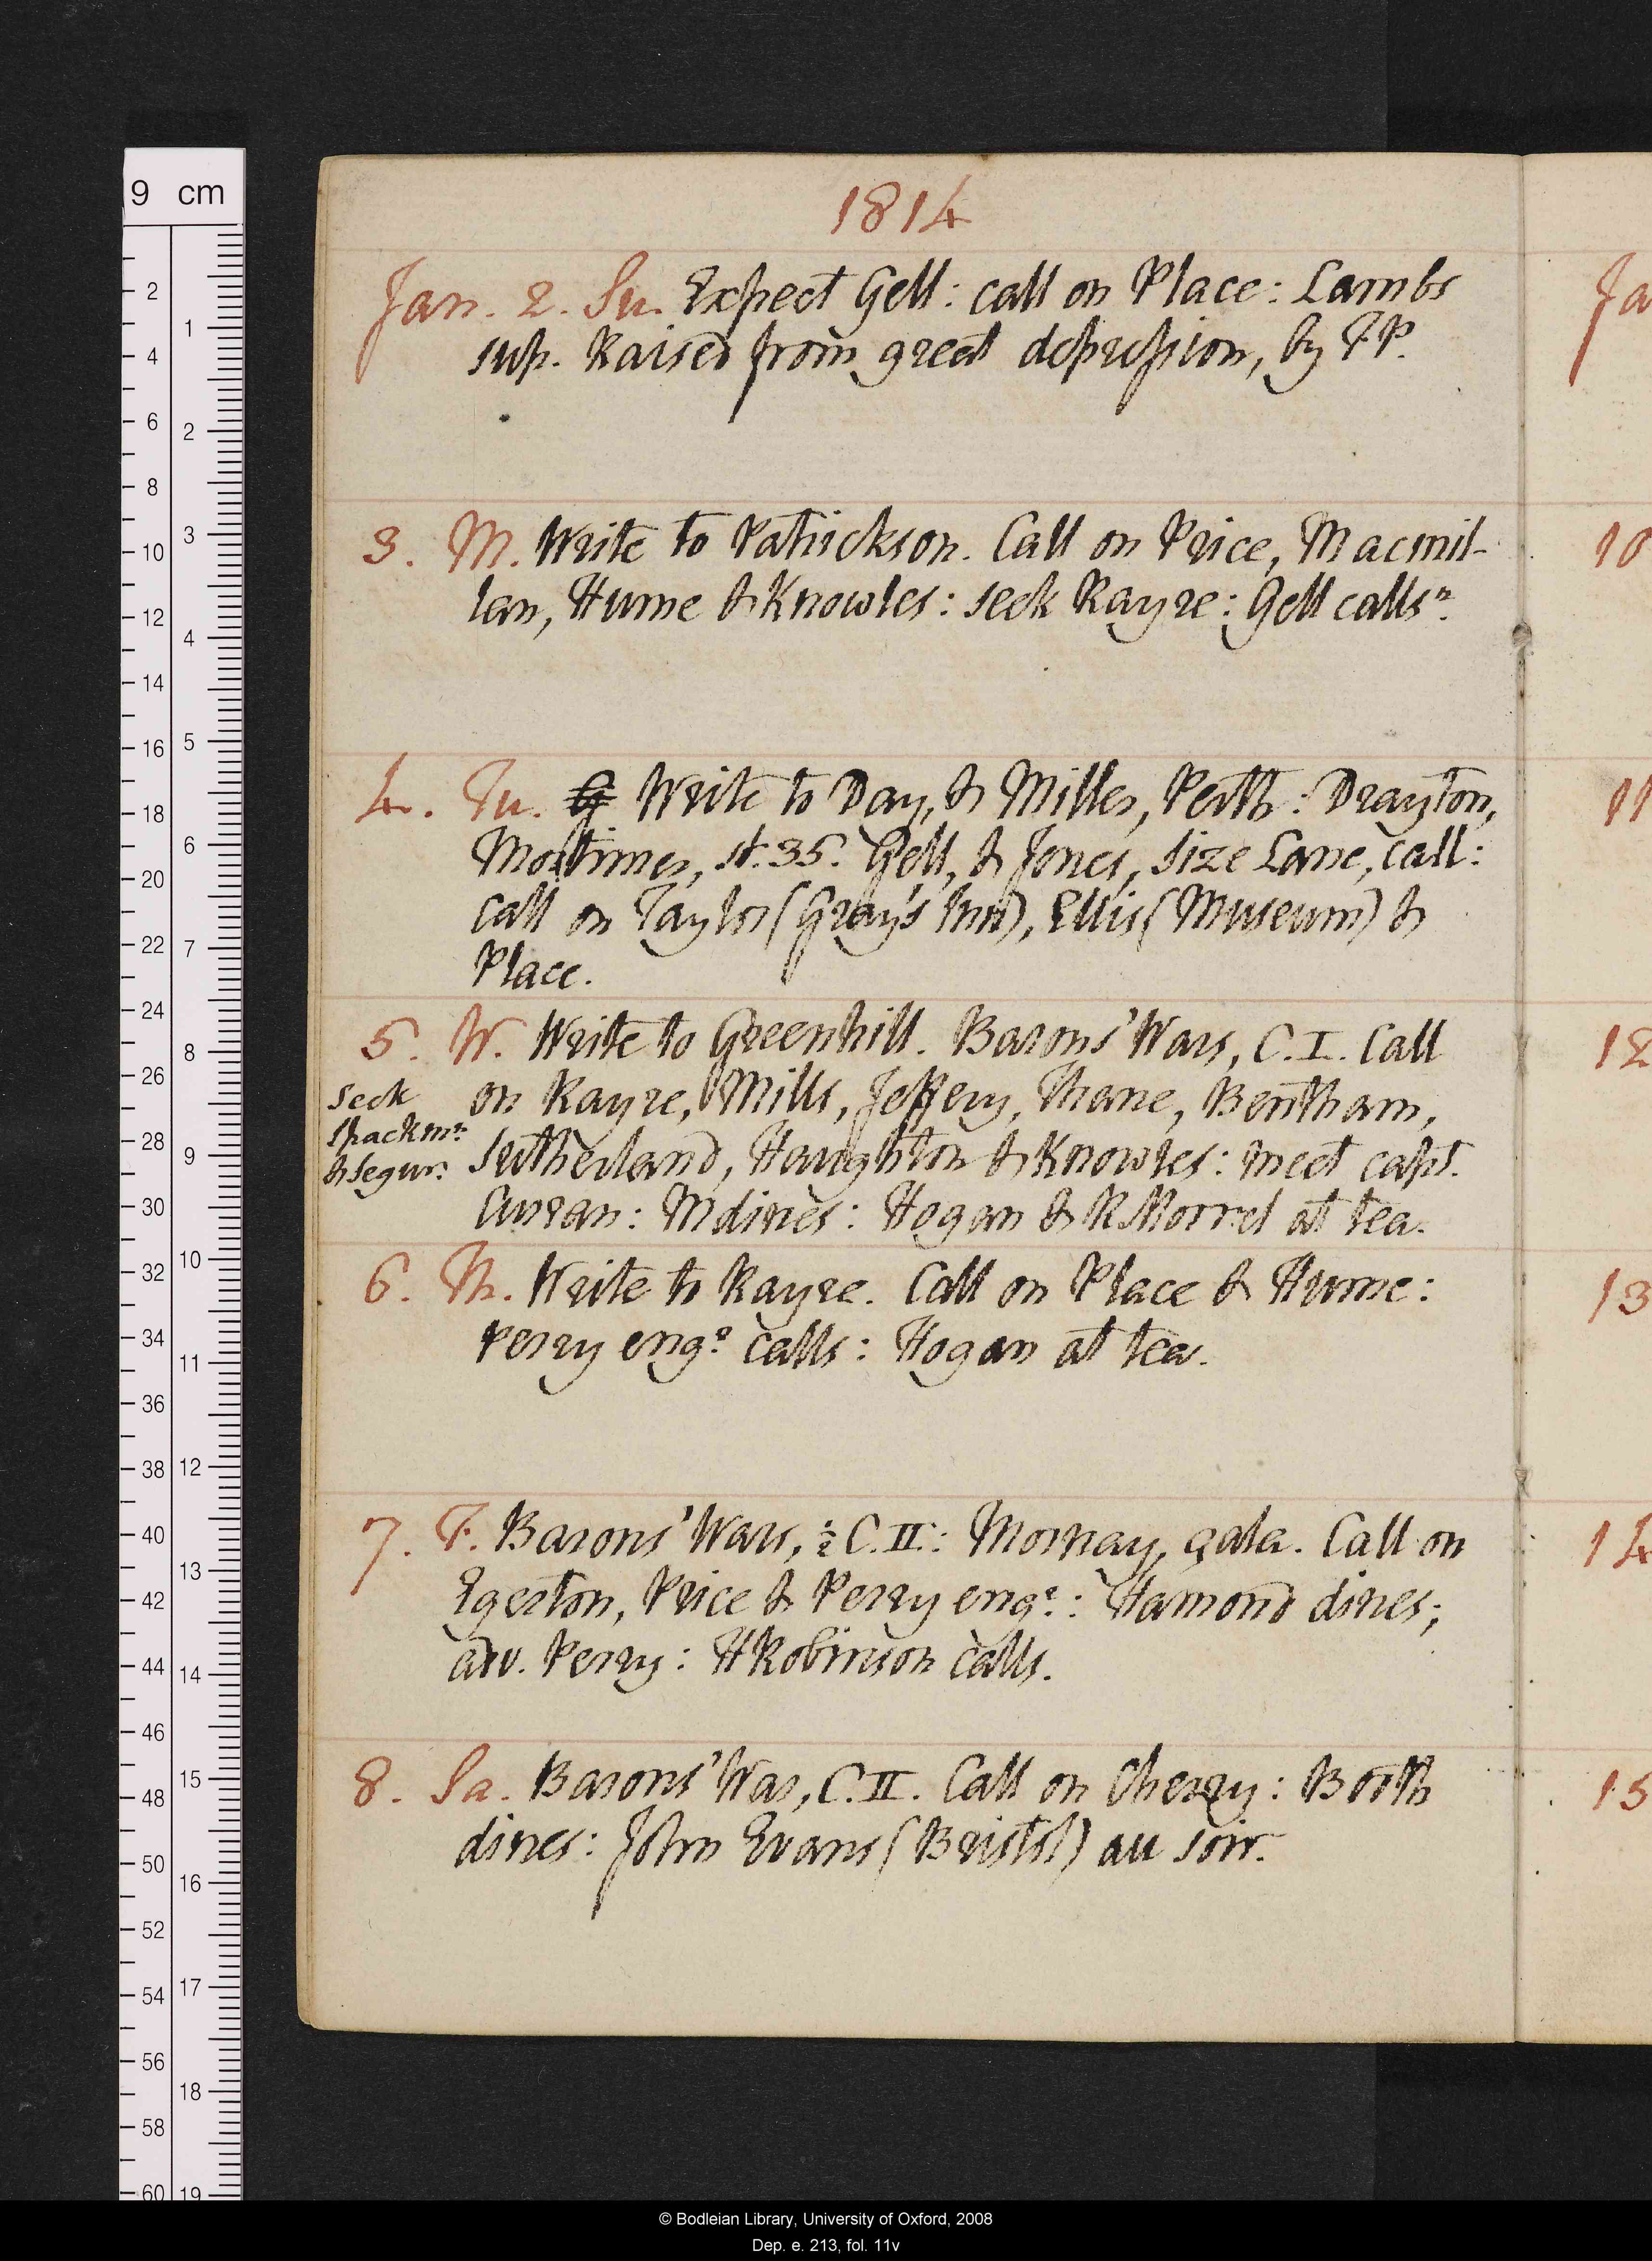 1814
Jan. 2. Su. Expect Gell: call on Place: Lambs
sup. Raised from great depression, by F.P.
3. M. Write to Patrickson. Call on Price, Macmil-
lan, Hume & Knowles: seek Rayre: Gell callsⁿ.
4. Tu. G Write to Day, & Miller, Perth: Drayton,
Mortimer, St. 35. Gell, & Jones, Size Lane, call:
call on Taylor (Gray's Inn), Ellis (Museum) &
Place.
5. W. Write to Greenhill. Barons' Wars, C. I. Call
on Rayre, Mills, Jeffery, Thane, Bentham,
Seek
Spackmⁿ
& Segurⁿ.
Sutherland, Haughton & Knowles: meet capt.
Curran: M dines: Hogan & R Morrel at tea.
6. Th. Write to Rayre. Call on Place & Hume:
Perry engʳ calls: Hogan at tea.
7. F. Barons' Wars, ½ C. II: Mornay, gala. Call on
Egerton, Price & Perry engʳ: Hamond dines;
adv. Perry: H Robinson calls.
8. Sa. Barons' War, C. II. Call on Cherry: Booth
dines: John Evans (Bristol) au soir.
Ja
10
11
12
13
14
15
9 cm
2 4 6 8 10 12 14 16 18 20 22 24 26 28 30 32 34 36 38 40 42 44 46 48 50 52 54 56 58 60
1 2 3 4 5 6 7 8 9 10 11 12 13 14 15 16 17 18 19
© Bodleian Library, University of Oxford, 2008
Dep. e. 213, fol. 11v